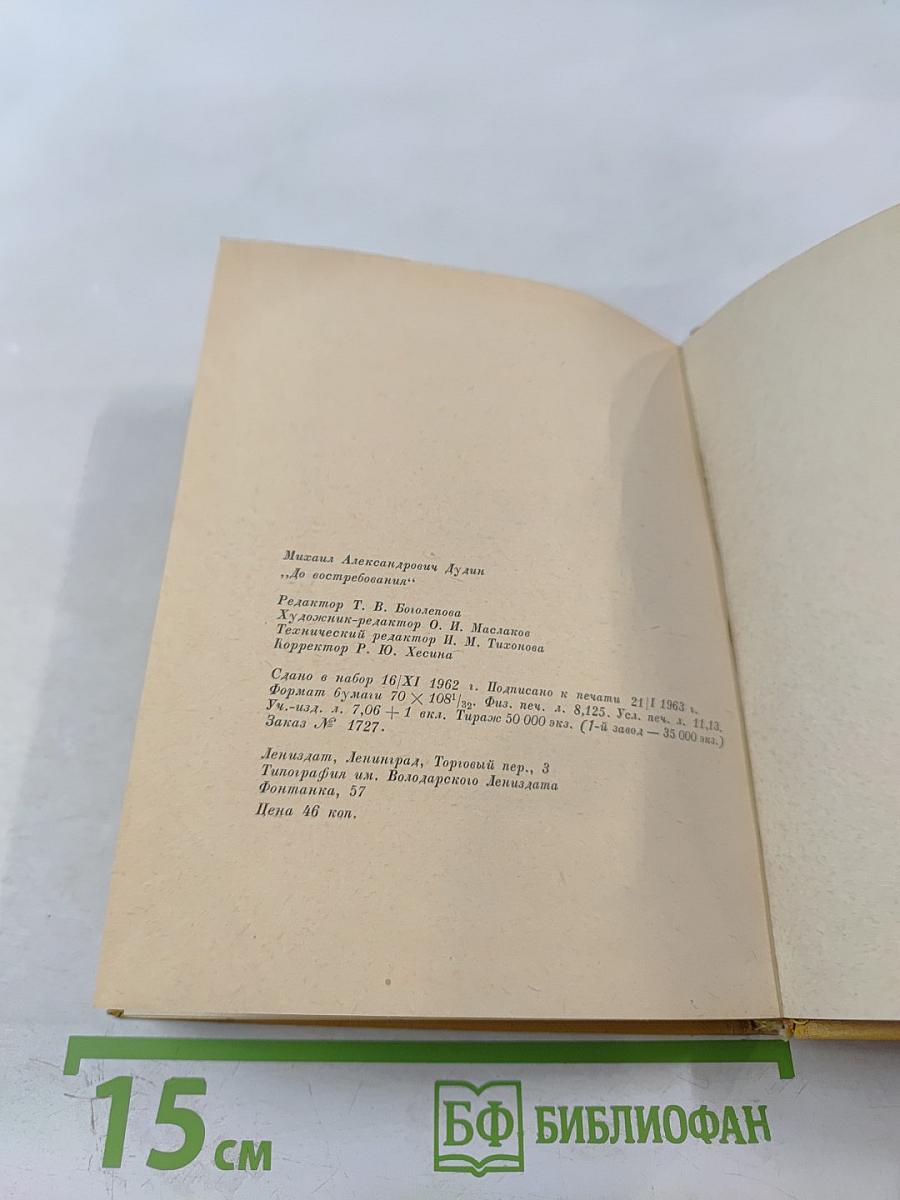 Михаил Александрович Дудин
„До востребования“
Редактор Т. В. Боголепова
Художник-редактор О. И. Маслаков
Технический редактор И. М. Тихонова
Корректор Р. Ю. Хесина
Сдано в набор 16/XI 1962 г. Подписано к печати 21/I 1963 г.
Формат бумаги 70 × 108¹/₃₂. Физ. печ. л. 8,125. Усл. печ. л. 11,13.
Уч.-изд. л. 7,06 + 1 вкл. Тираж 50 000 экз. (1-й завод — 35 000 экз.)
Заказ № 1727.
Лениздат, Ленинград, Торговый пер., 3
Типография им. Володарского Лениздата
Фонтанка, 57
Цена 46 коп.
15 см
БФ БИБЛИОФАН